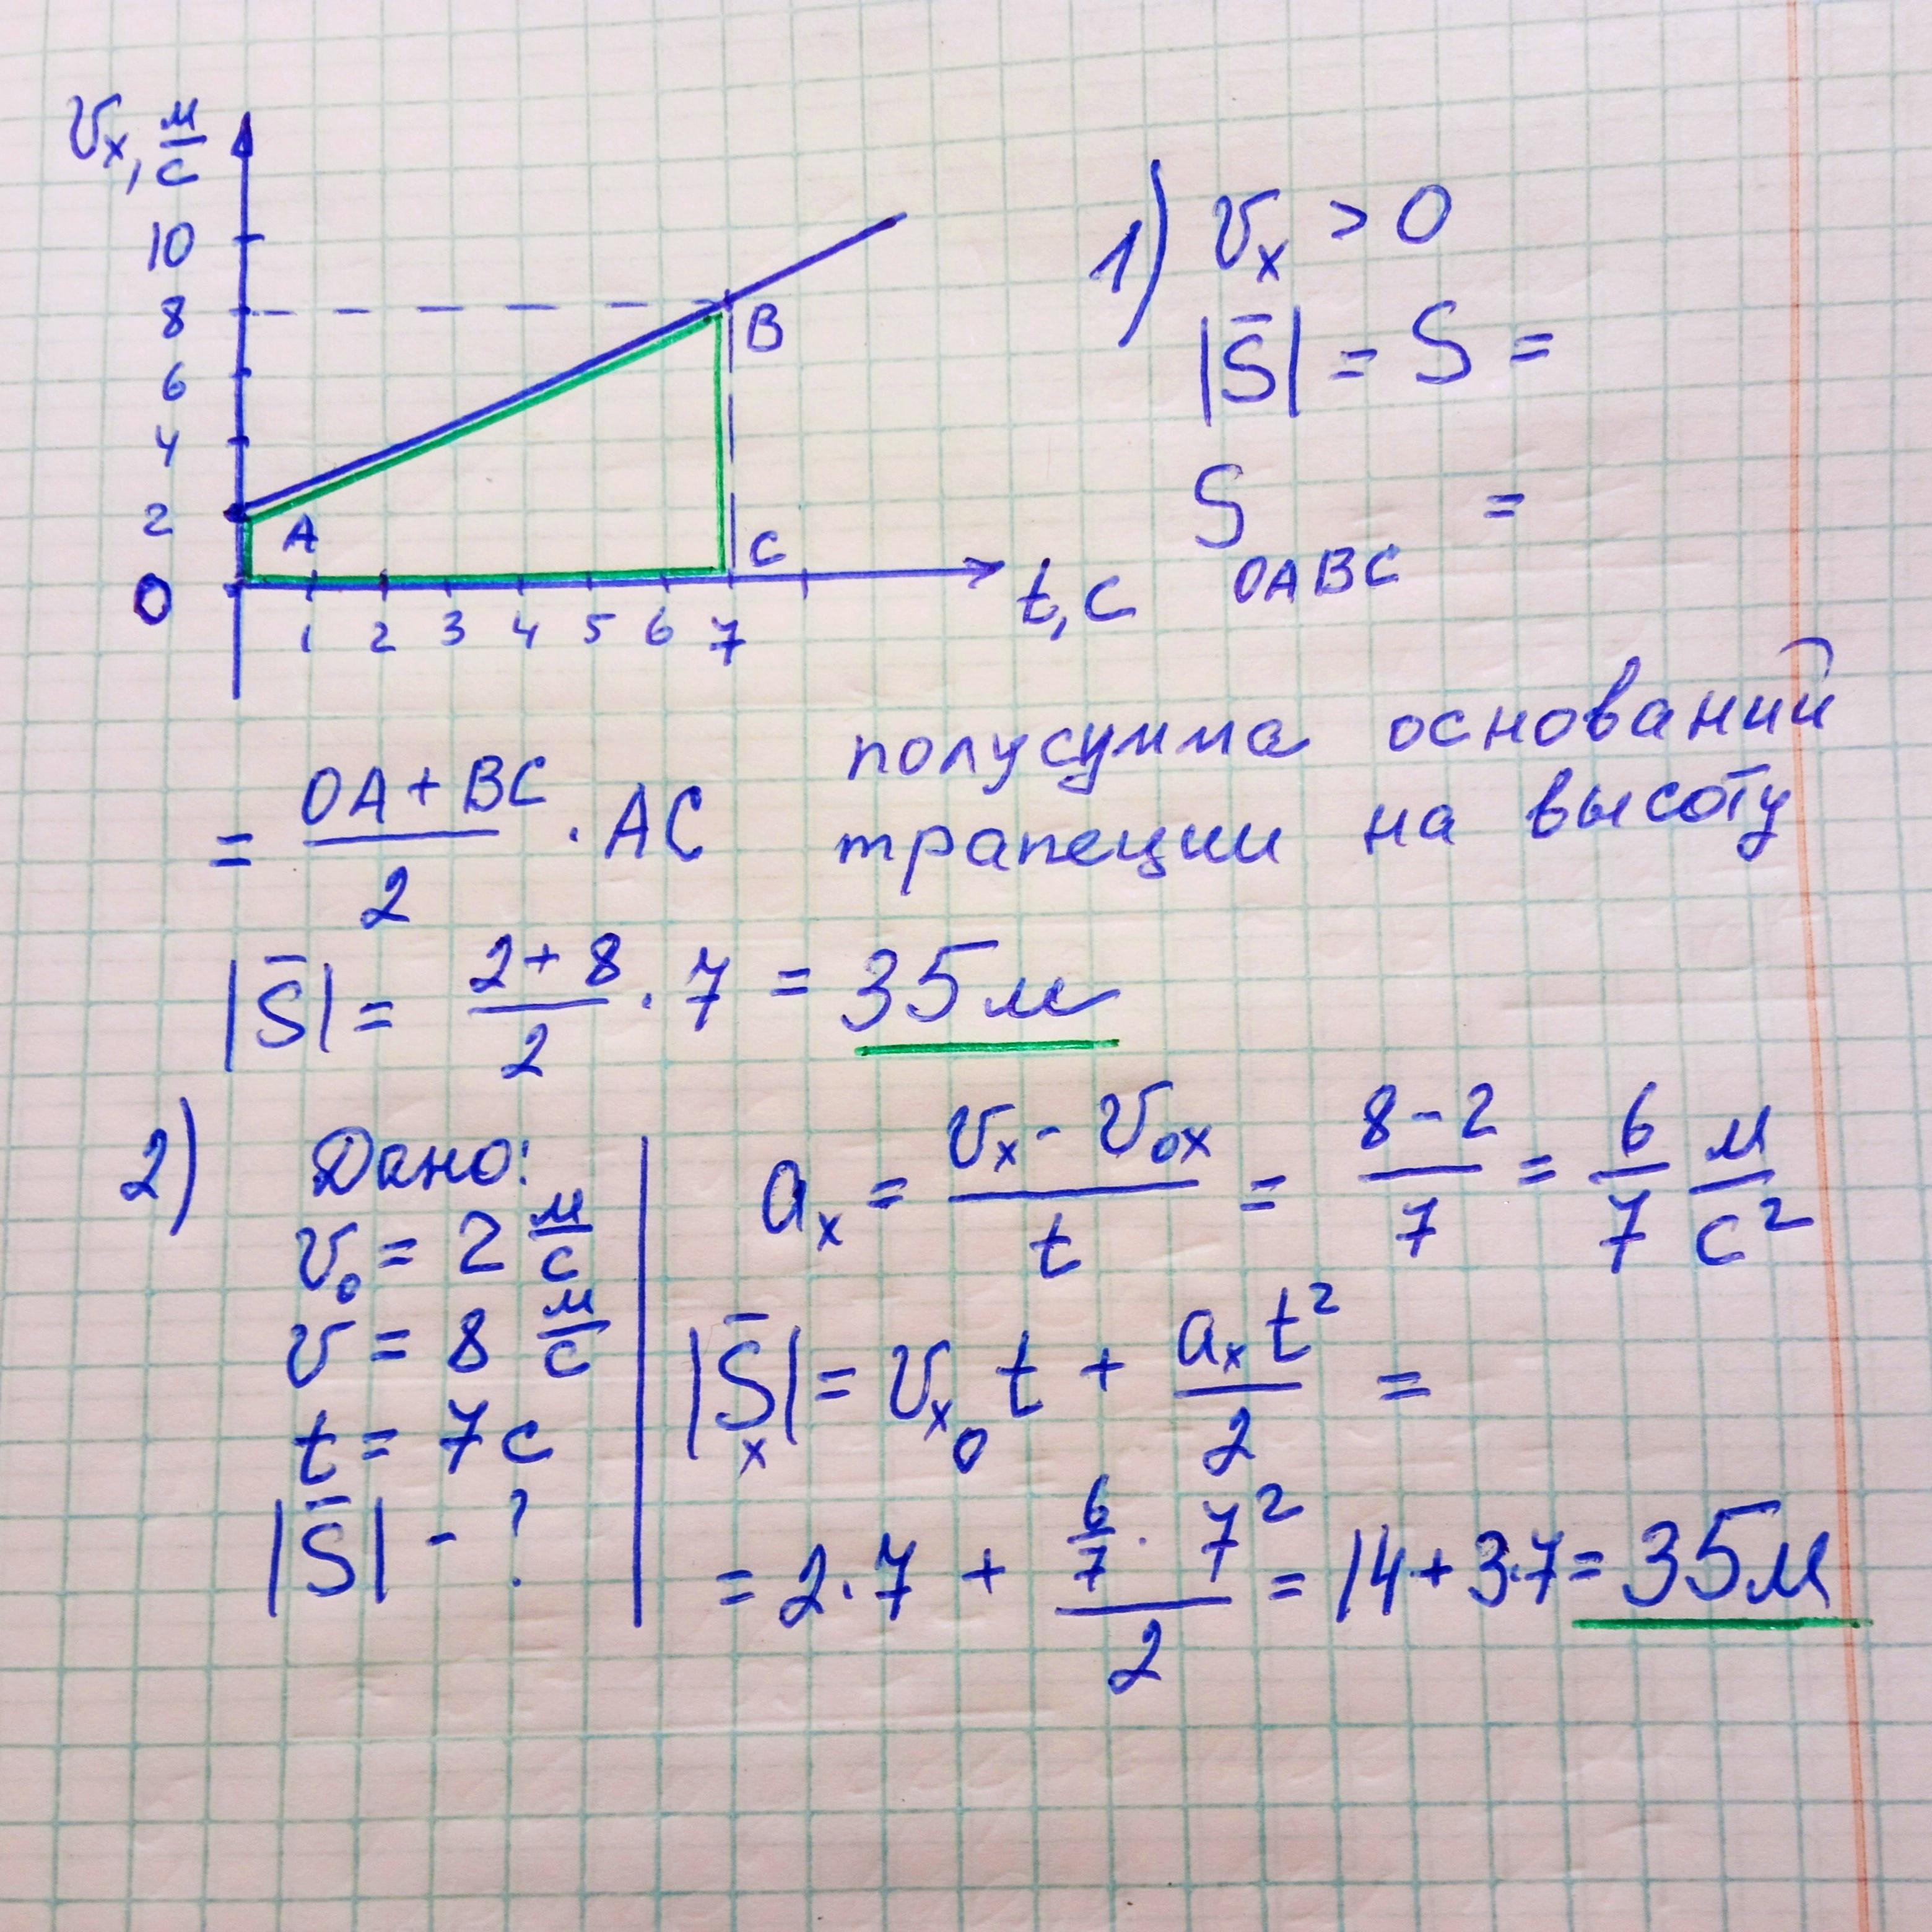 Vx, м/с
10
8
6
4
2
0
A
B
C
1 2 3 4 5 6 7
t, c
1) Vx > 0
|S̄| = S =
S OABC =
= (OA + BC)/2 · AC полусумма оснований
трапеции на высоту
|S̄| = (2 + 8)/2 · 7 = 35 м
2) Дано:
v₀ = 2 м/с
v = 8 м/с
t = 7 c
|S̄| - ?
aₓ = (vₓ - v₀ₓ)/t = (8 - 2)/7 = 6/7 м/с²
|S̄ₓ| = vₓ₀ t + aₓt²/2 =
= 2·7 + (6/7 · 7²)/2 = 14 + 3·7 = 35 м